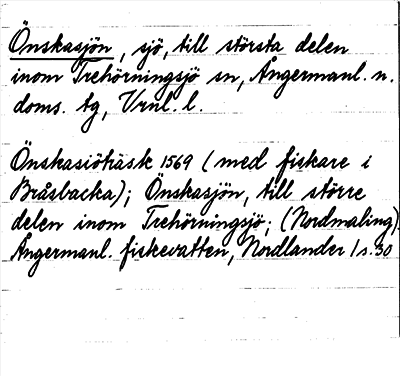 Önskasjön, sjö, till största delen
inom Trehörningsjö sn, Ångermanl. n.
doms. tg, Vrnl. l.
Önskasiöträsk 1569 (med fiskare i
Bråsbacka); Önskasjön, till större
delen inom Trehörningsjö; (Nordmaling).
Ångermanl. fiskevatten, Nordlander 1 s. 30